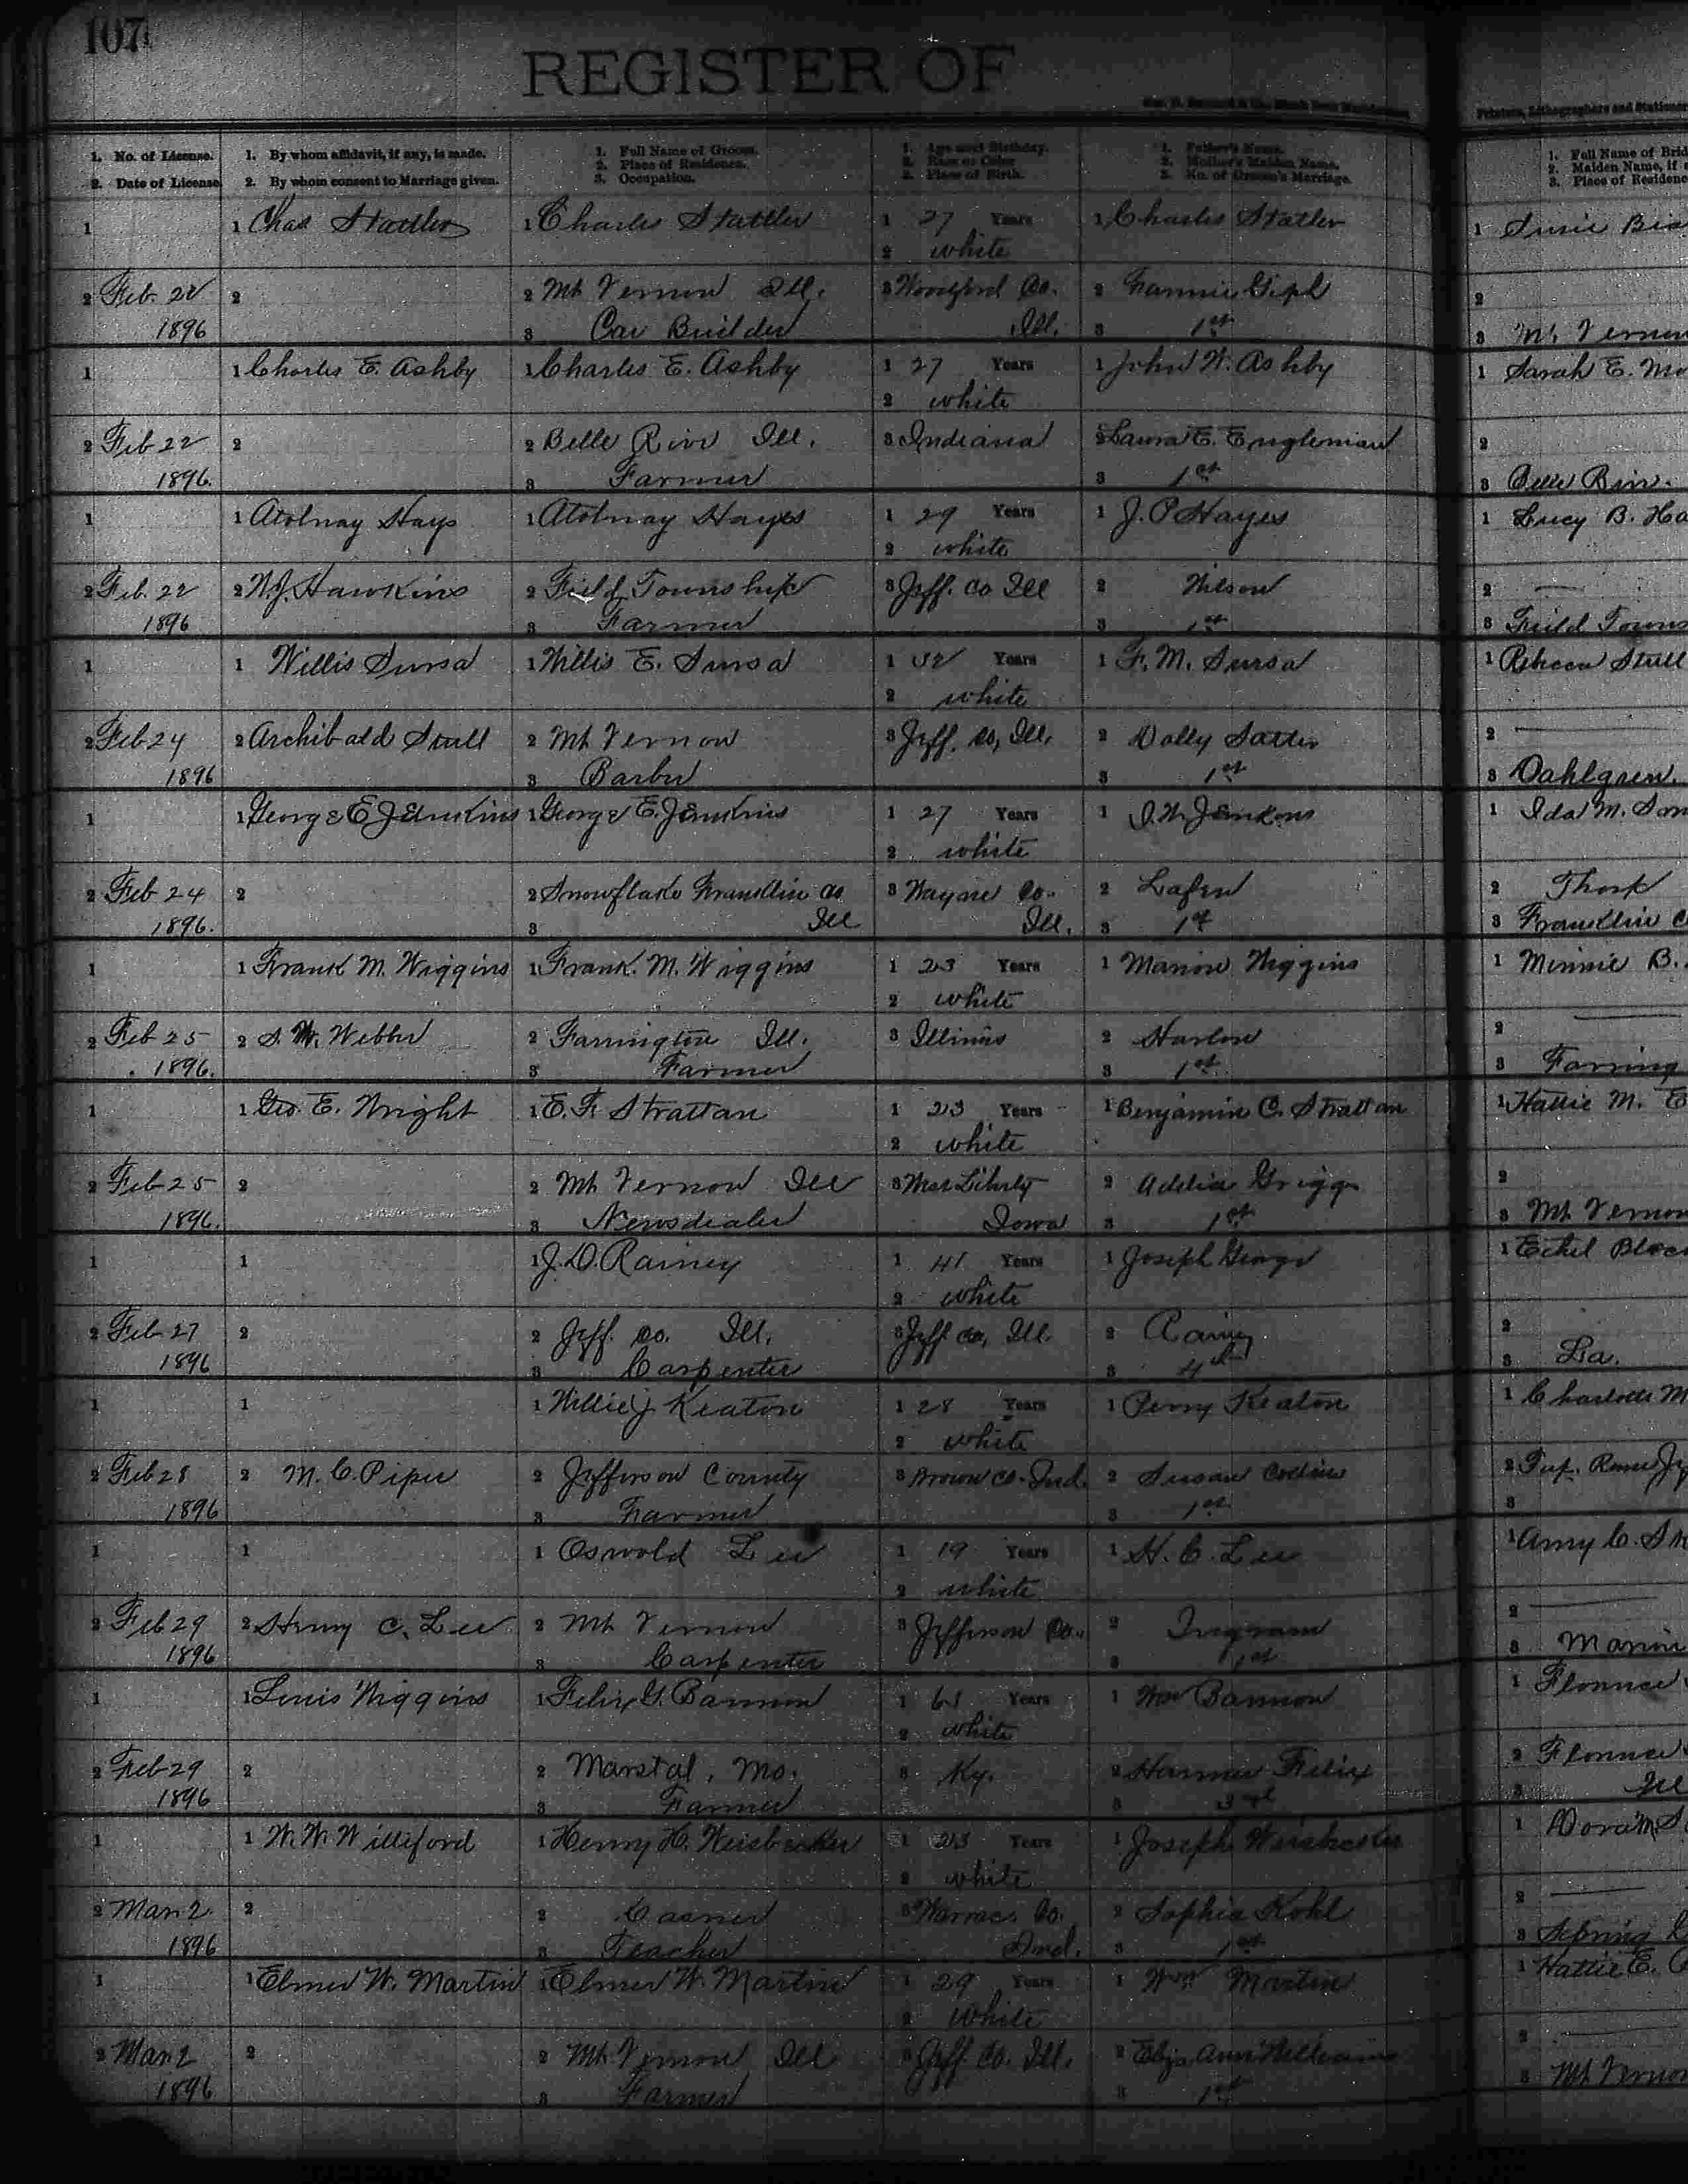 107
REGISTER OF
1. No. of License.
2. Date of License.
1. By whom affidavit, if any, is made.
2. By whom consent to Marriage given.
1. Full Name of Groom.
2. Place of Residence.
3. Occupation.
1. Age next Birthday.
2. Race or Color
3. Place of Birth.
1. Father's Name.
2. Mother's Maiden Name.
3. No. of Groom's Marriage.
1. Full Name of Brid
2. Maiden Name, if
3. Place of Residenc
1 1 Chas Stattler 1 Charles Stattler 1 27 Years 1 Charles Statler 1 Susie
2 white
2 Feb. 22 2 2 Mt Vernon Ill. 3 Woodford Co. 2 Fannie 2
1896 3 Car Builder Ill. 3 1st 3 Mt. Vernon
1 1 Charles E. Ashby 1 Charles E. Ashby 1 27 Years 1 John W. Ashby 1 Sarah E. Mo
2 white
2 Feb 22 2 2 Belle Rive Ill. 3 Indiana 2 Laura E. Engleman 2
1896. 3 Farmer 3 1st 3 Belle Rive.
1 1 Atolnay Hays 1 Atolnay Hayes 1 29 Years 1 J. P. Hayes 1 Lucy B. Ha
2 white
2 Feb. 22 2 W.J. Hawkins 2 Field Township 3 Jeff. Co Ill 2 Wilson 2
1896 3 Farmer 3 1st 3 Feild Towns
1 1 Willis Sursa 1 Willis E. Sursa 1 Years 1 F. M. Sursa 1 Rebecca Stull
2 white
2 Feb 24 2 Archibald Stull 2 Mt Vernon 3 Jeff. Co, Ill. 2 Dolly Satter 2
1896 3 Barber 3 1st 3 Dahlgren.
1 1 George E Jenkins 1 George E. Jenkins 1 27 Years 1 Jenkins 1 Ida M.
2 white
2 Feb 24 2 2 Snowflake Franklin Co 3 Wayne Co. 2 2
1896. 3 Ill Ill. 3 1st 3 Franklin C
1 1 Frank M. Wiggins 1 Frank. M. Wiggins 1 23 Years 1 Marion Wiggins 1 Minnie B.
2 white
2 Feb 25 2 S. W. Webber 2 Farrington Ill. 3 Illinois 2 Harlow 2
1896. 3 Farmer 3 1st 3 Farring
1 1 Geo. E. Wright 1 E. F. Strattan 1 23 Years 1 Benjamin C. Strattan 1 Hattie M. E
2 white
2 Feb 25 2 2 Mt Vernon Ill 3 West Liberty 2 Addia Grigg 2
1896. 3 Newsdealer Iowa 3 1st 3 Mt Vernon
1 1 1 J. D. Rainey 1 41 Years 1 Joseph George 1 Ethel
2 white
2 Feb 27 2 2 Jeff. Co. Ill. 3 Jeff Co, Ill. 2 Rainey 2
1896 3 Carpenter 3 4th 3 La.
1 1 1 Willie J Keaton 1 28 Years 1 Perry Keaton 1 Charlotte M
2 white
2 Feb 28 2 M. C. Piper 2 Jefferson County 3 Brown Co. Ind. 2 Susan 2
1896 3 Farmer 3 1st 3
1 1 1 Oswold Lee 1 19 Years 1 H. C. Lee 1 Amy C.
2 white
2 Feb 29 2 Henry C. Lee 2 Mt Vernon 3 Jefferson Co. 2 Ingram 2
1896 3 Carpenter 3 1st 3 Marion
1 1 Louis Wiggins 1 Felix G. Bannon 1 Years 1 Wm Bannon 1 Florence
2 white
2 Feb 29 2 2 Marstal, Mo. 3 Ky. 2 Felix 2 Florence
1896 3 Farmer 3 3rd 3 Ill
1 1 W. W. Williford 1 Henry H. Weisbecker 1 23 Years 1 Joseph 1 Dora M. S
2 white
2 Mar. 2 2 2 Casner 3 Co. 2 Sophia Kohl 2
1896 3 Teacher Ind. 3 1st 3
1 1 Elmer W. Martin 1 Elmer W. Martin 1 29 Years 1 Wm Martin 1 Hattie E.
2 white
2 Mar. 2 2 2 Mt. Vernon Ill 3 Jeff Co. Ill. 2 Ann Williams 2
1896 3 Farmer 3 1st 3 Mt Vernon